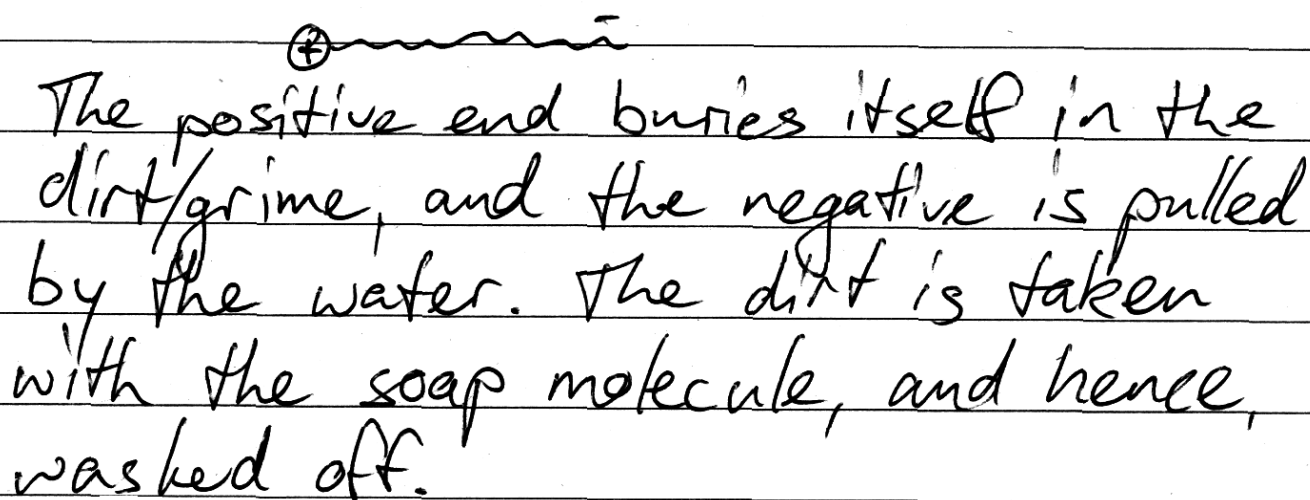 The positive end buries itself in the
dirt/grime, and the negative is pulled
by the water. The dirt is taken
with the soap molecule, and hence,
washed off.